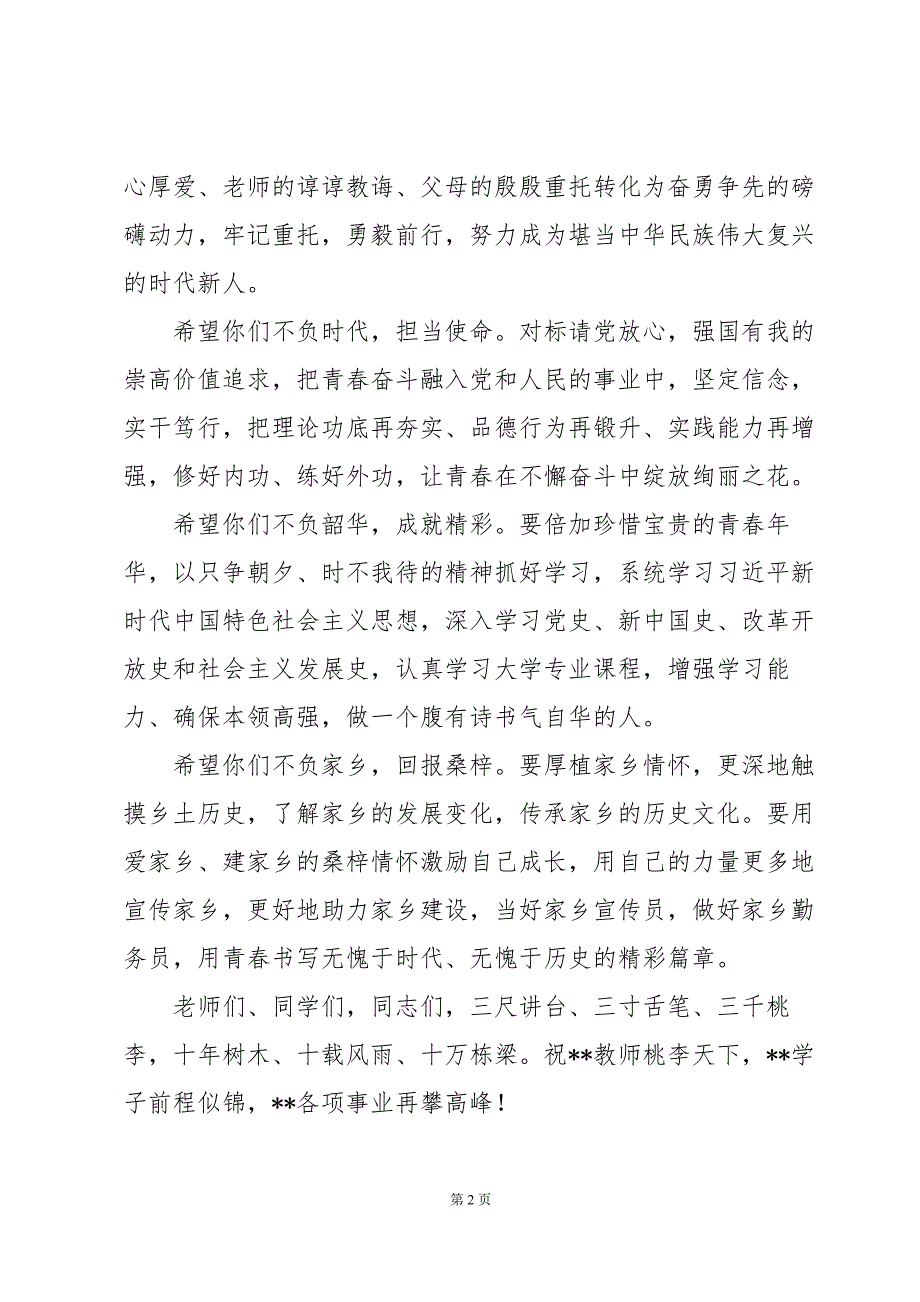 心厚爱、老师的谆谆教诲、父母的殷殷重托转化为奋勇争先的磅
礴动力，牢记重托，勇毅前行，努力成为堪当中华民族伟大复兴
的时代新人。
希望你们不负时代，担当使命。对标请党放心，强国有我的
崇高价值追求，把青春奋斗融入党和人民的事业中，坚定信念，
实干笃行，把理论功底再夯实、品德行为再锻升、实践能力再增
强，修好内功、练好外功，让青春在不懈奋斗中绽放绚丽之花。
希望你们不负韶华，成就精彩。要倍加珍惜宝贵的青春年
华，以只争朝夕、时不我待的精神抓好学习，系统学习习近平新
时代中国特色社会主义思想，深入学习党史、新中国史、改革开
放史和社会主义发展史，认真学习大学专业课程，增强学习能
力、确保本领高强，做一个腹有诗书气自华的人。
希望你们不负家乡，回报桑梓。要厚植家乡情怀，更深地触
摸乡土历史，了解家乡的发展变化，传承家乡的历史文化。要用
爱家乡、建家乡的桑梓情怀激励自己成长，用自己的力量更多地
宣传家乡，更好地助力家乡建设，当好家乡宣传员，做好家乡勤
务员，用青春书写无愧于时代、无愧于历史的精彩篇章。
老师们、同学们，同志们，三尺讲台、三寸舌笔、三千桃
李，十年树木、十载风雨、十万栋梁。祝**教师桃李天下，**学
子前程似锦，**各项事业再攀高峰！
第 2 页